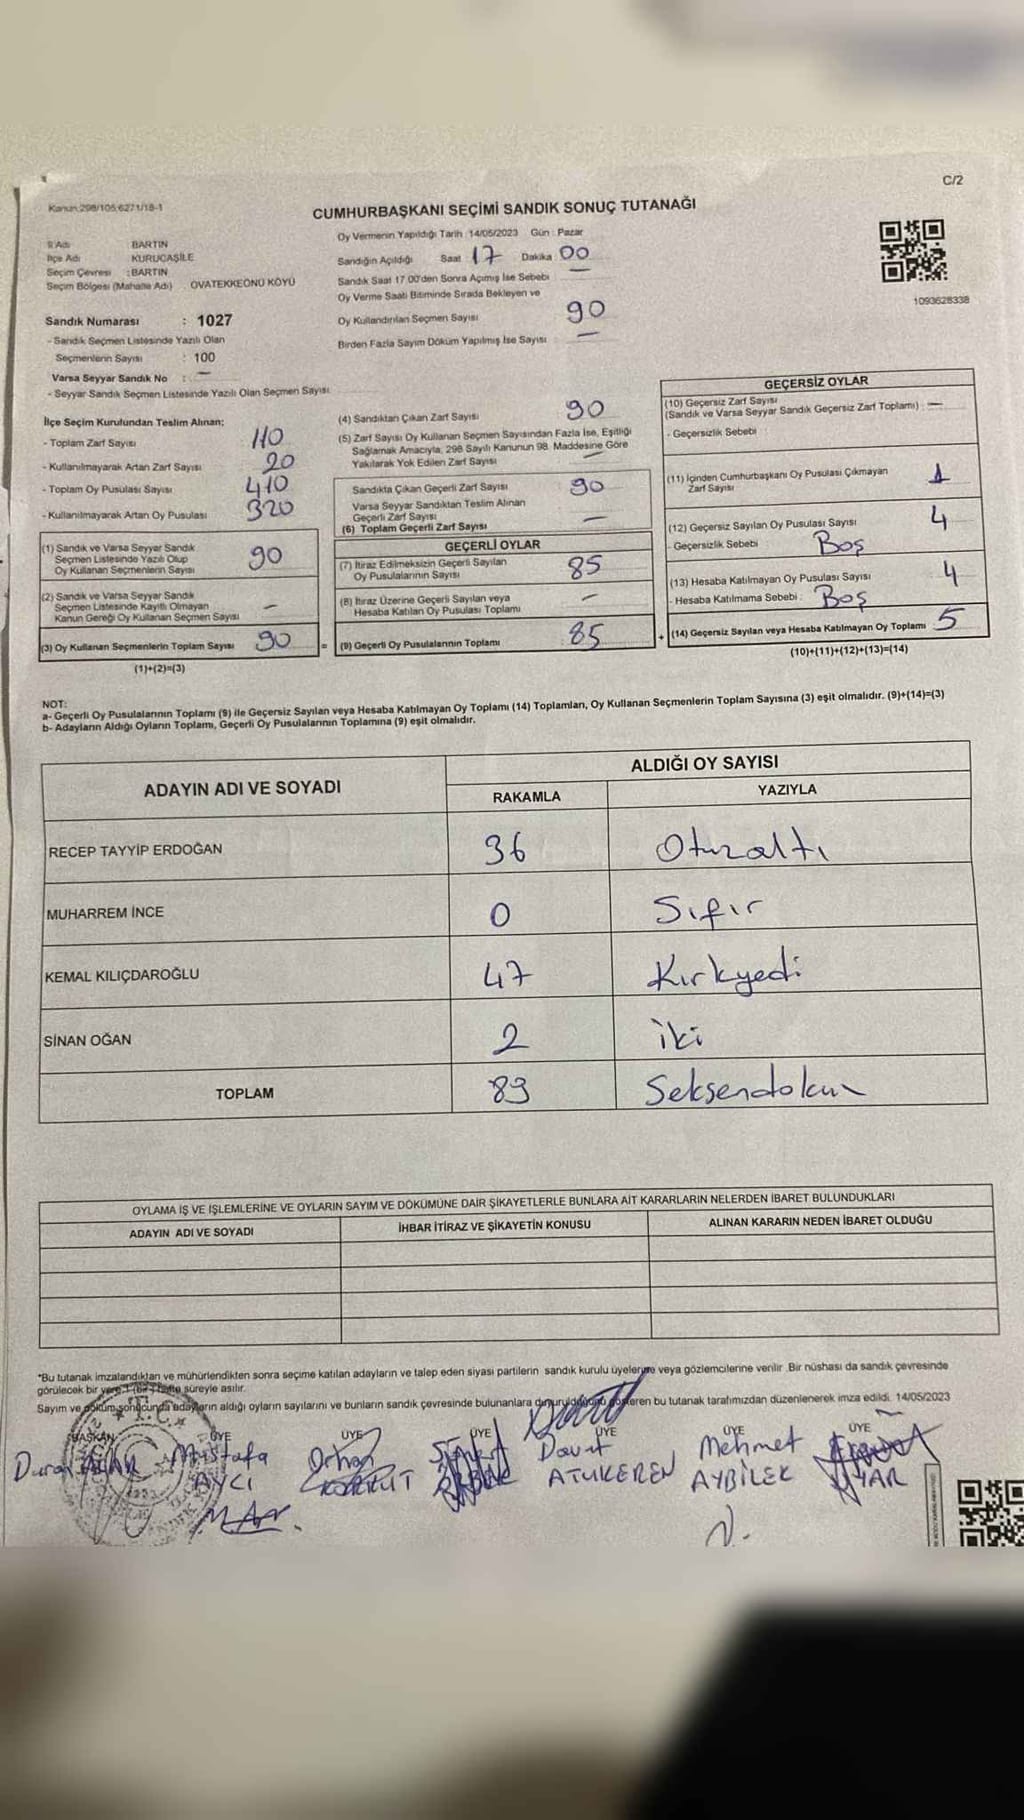 C/2
Kanun:298/105;6271/18-1
CUMHURBAŞKANI SEÇİMİ SANDIK SONUÇ TUTANAĞI
İl Adı BARTIN
İlçe Adı KURUCAŞİLE
Seçim Çevresi : BARTIN
Seçim Bölgesi (Mahalle Adı) OVATEKKEÖNÜ KÖYÜ
Sandık Numarası : 1027
- Sandık Seçmen Listesinde Yazılı Olan
Seçmenlerin Sayısı : 100
Varsa Seyyar Sandık No : —
- Seyyar Sandık Seçmen Listesinde Yazılı Olan Seçmen Sayısı:
Oy Vermenin Yapıldığı Tarih : 14/05/2023 Gün : Pazar
Sandığın Açıldığı Saat 17 Dakika 00
Sandık Saat 17.00'den Sonra Açılmış İse Sebebi —
Oy Verme Saati Bitiminde Sırada Bekleyen ve
Oy Kullandırılan Seçmen Sayısı 90
Birden Fazla Sayım Döküm Yapılmış İse Sayısı —
1093628338
İlçe Seçim Kurulundan Teslim Alınan;
- Toplam Zarf Sayısı 110
- Kullanılmayarak Artan Zarf Sayısı 20
- Toplam Oy Pusulası Sayısı 410
- Kullanılmayarak Artan Oy Pusulası 320
(1) Sandık ve Varsa Seyyar Sandık
Seçmen Listesinde Yazılı Olup
Oy Kullanan Seçmenlerin Sayısı 90
(2) Sandık ve Varsa Seyyar Sandık
Seçmen Listesinde Kayıtlı Olmayan
Kanun Gereği Oy Kullanan Seçmen Sayısı —
(3) Oy Kullanan Seçmenlerin Toplam Sayısı 90 =
(1)+(2)=(3)
(4) Sandıktan Çıkan Zarf Sayısı 90
(5) Zarf Sayısı Oy Kullanan Seçmen Sayısından Fazla İse, Eşitliği
Sağlamak Amacıyla, 298 Sayılı Kanunun 98. Maddesine Göre
Yakılarak Yok Edilen Zarf Sayısı —
Sandıkta Çıkan Geçerli Zarf Sayısı 90
Varsa Seyyar Sandıktan Teslim Alınan
Geçerli Zarf Sayısı —
(6) Toplam Geçerli Zarf Sayısı
GEÇERLİ OYLAR
(7) İtiraz Edilmeksizin Geçerli Sayılan
Oy Pusulalarının Sayısı 85
(8) İtiraz Üzerine Geçerli Sayılan veya
Hesaba Katılan Oy Pusulası Toplamı —
(9) Geçerli Oy Pusulalarının Toplamı 85 +
GEÇERSİZ OYLAR
(10) Geçersiz Zarf Sayısı
(Sandık ve Varsa Seyyar Sandık Geçersiz Zarf Toplamı) : —
- Geçersizlik Sebebi :
(11) İçinden Cumhurbaşkanı Oy Pusulası Çıkmayan
Zarf Sayısı 1
(12) Geçersiz Sayılan Oy Pusulası Sayısı 4
- Geçersizlik Sebebi Boş
(13) Hesaba Katılmayan Oy Pusulası Sayısı 4
- Hesaba Katılmama Sebebi : Boş
(14) Geçersiz Sayılan veya Hesaba Katılmayan Oy Toplamı 5
(10)+(11)+(12)+(13)=(14)
NOT:
a- Geçerli Oy Pusulalarının Toplamı (9) ile Geçersiz Sayılan veya Hesaba Katılmayan Oy Toplamı (14) Toplamları, Oy Kullanan Seçmenlerin Toplam Sayısına (3) eşit olmalıdır. (9)+(14)=(3)
b- Adayların Aldığı Oyların Toplamı, Geçerli Oy Pusulalarının Toplamına (9) eşit olmalıdır.
ADAYIN ADI VE SOYADI ALDIĞI OY SAYISI
RAKAMLA YAZIYLA
RECEP TAYYİP ERDOĞAN 36 Otuzaltı
MUHARREM İNCE 0 Sıfır
KEMAL KILIÇDAROĞLU 47 Kırkyedi
SİNAN OĞAN 2 iki
TOPLAM 89 Seksendokuz
OYLAMA İŞ VE İŞLEMLERİNE VE OYLARIN SAYIM VE DÖKÜMÜNE DAİR ŞİKAYETLERLE BUNLARA AİT KARARLARIN NELERDEN İBARET BULUNDUKLARI
ADAYIN ADI VE SOYADI İHBAR İTİRAZ VE ŞİKAYETİN KONUSU ALINAN KARARIN NEDEN İBARET OLDUĞU
*Bu tutanak imzalandıktan ve mühürlendikten sonra seçime katılan adayların ve talep eden siyasi partilerin sandık kurulu üyelerine veya gözlemcilerine verilir. Bir nüshası da sandık çevresinde
görülecek bir yere 1 (bir) hafta süreyle asılır.
Sayım ve döküm sonucunda adayların aldığı oyların sayılarını ve bunların sandık çevresinde bulunanlara duyurulduğunu gösteren bu tutanak tarafımızdan düzenlenerek imza edildi. 14/05/2023
T.C.
BAŞKAN ÜYE ÜYE ÜYE ÜYE ÜYE ÜYE
Mustafa Orhan Davut Mehmet
AVCI KORKUT ATLIKEREN AYBİLEK YAR